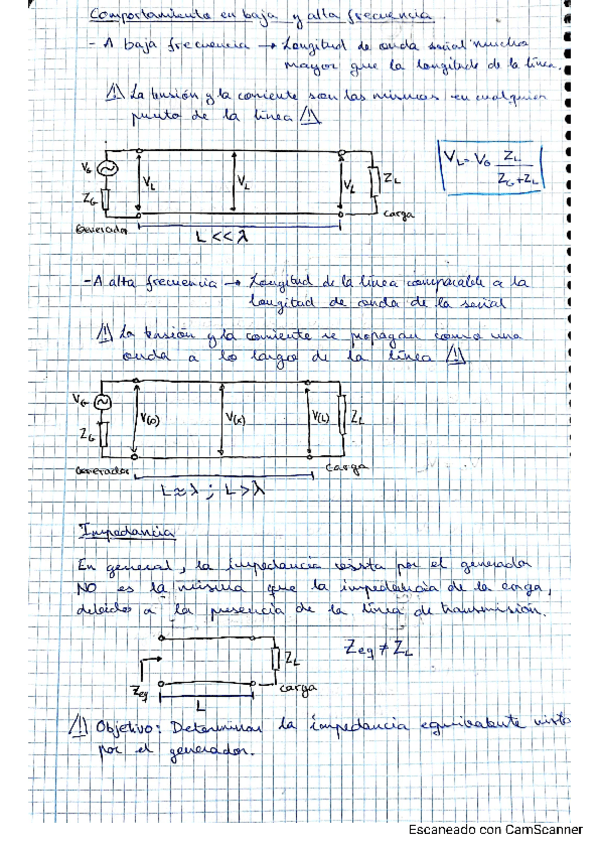 Comportamiento en baja y alta frecuencia.
- A baja frecuencia → Longitud de onda señal mucho
mayor que la longitud de la línea.
⚠ La tensión y la corriente son las mismas en cualquier
punto de la línea ⚠
VG
ZG
VL
VL
VL
ZL
VL = VG ZL / ZG + ZL
Generador
carga
L << λ
- A alta frecuencia → Longitud de la línea comparable a la
longitud de onda de la señal
⚠ La tensión y la corriente se propagan como una
onda a lo largo de la línea ⚠
VG
ZG
V(0)
V(x)
V(L)
ZL
Generador
carga
L ≈ λ ; L > λ
Impedancia
En general, la impedancia vista por el generador
NO es la misma que la impedancia de la carga,
debido a la presencia de la línea de transmisión.
Zeq ≠ ZL
ZL
Zeq
carga
L
⚠ Objetivo: Determinar la impedancia equivalente vista
por el generador.
Escaneado con CamScanner